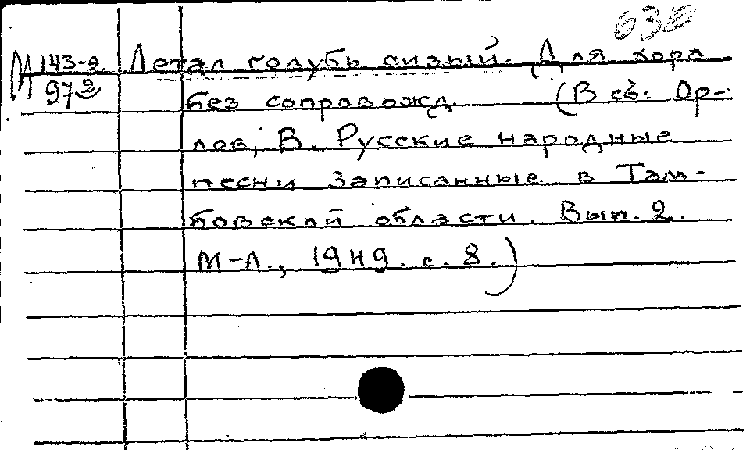 630
М 143-2 Летал голубь сизый. Для хора
97
без сопровожд. (В сб. Ор-
лов, В. Русские народные
песни записанные в Там-
бовской области. Вып. 2.
М-Л., 1949. с. 8.)